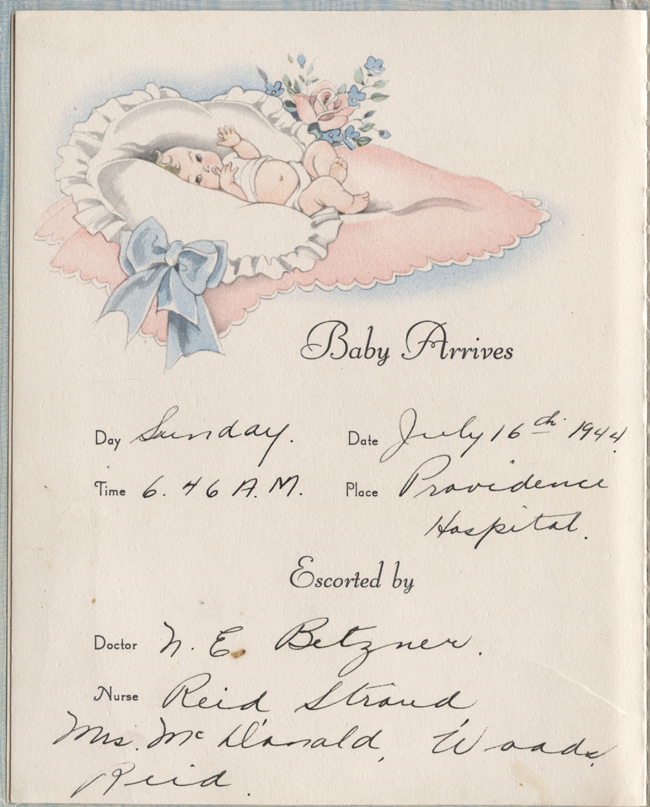 Baby Arrives
Day Sunday. Date July 16th 1944.
Time 6.46 A.M. Place Providence
Hospital.
Escorted by
Doctor N. E. Betzner.
Nurse Reid Stroud
Mrs. McDonald, Woods,
Reid.